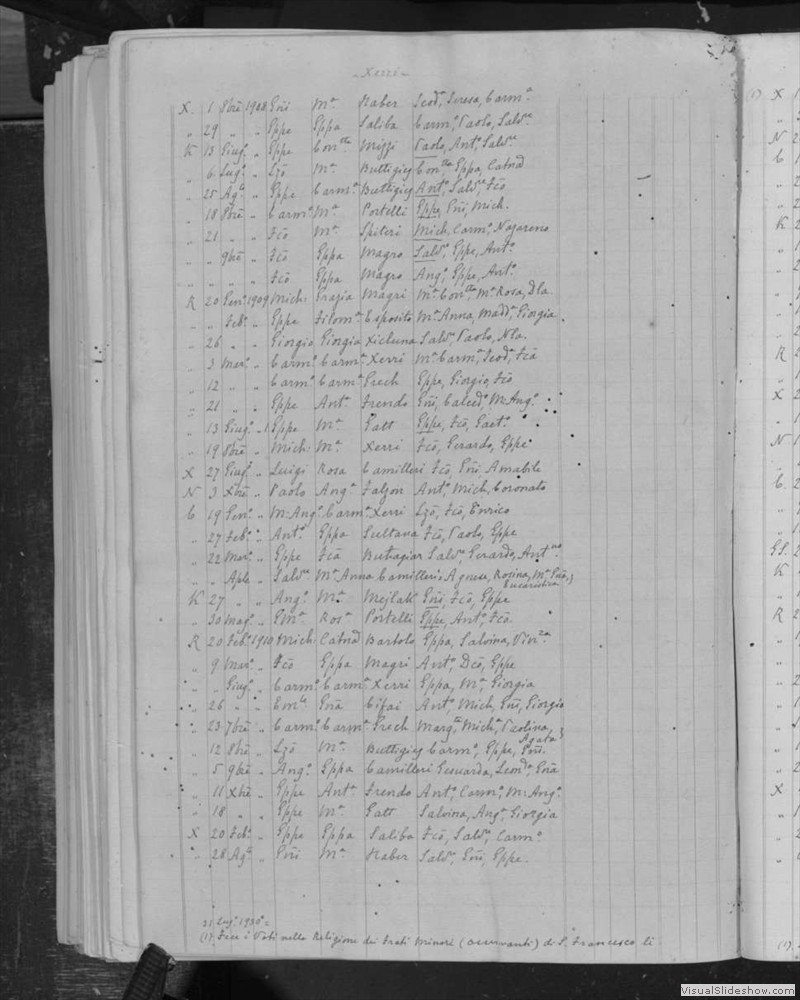 - Xerri -
X 1 8bre 1908 Gni Mª Staber Teodª, Teresa, Carmª
" 29 " " Eppe Eppa Saliba Carmº, Paolo, Salvre
K 13 Giugº " Eppe Conttª Mizzi Paolo, Antº, Salvre
" 6 Lugº " Lzō Mª Buttigieg Conttª, Eppa, Catnā
" 25 Agº " Eppe Carmª Buttigieg Antº, Salvre, Fcō
" 18 8bre " Carmº Mª Portelli Eppe, Gni, Mich.
" 21 " " Fcō Mª Spiteri Mich, Carmº, Nazareno
" " 9bre " Fcō Eppa Magro Salvº, Eppe, Antº
" " " " Fcō Eppa Magro Angº, Eppe, Antº
R 20 Genº 1909 Mich. Grazia Magri Mª Conttª, Mª Rosa, Dla
" " Febº " Eppe Filomª Esposito Mª Anna, Maddª, Giorgia
" 26 " " Giorgio Giorgia Xicluna Salvª, Paolo, Nla.
" 3 Marº " Carmº Carmª Xerri Mª Carmª, Teodª, Fcā
" 12 " " Carmº Carmª Grech Eppe, Giorgio, Fcō
" 21 " " Eppe Antª Frendo Gni, Calcedº, M: Angº
" 13 Giugº " Eppe Mª Gatt Eppe, Fcō, Gaetº
" 19 8bre " Mich. Mª Xerri Fcō, Gerardo, Eppe
X 27 Giugº " Luigi Rosa Camilleri Fcō, Gni Amabile
N 3 Xbre " Paolo Angª Falzon Antº, Mich, Coronato
C 19 Genº " M: Angº Carmª Xerri Lzō, Fcō, Enrico
" 27 Febº " Antº Eppa Sultana Fcō, Paolo, Eppe
" 22 Marº " Eppe Fcā Buttagiar Salvre Gerardo, Antnº
" " Aple " Salvre Mª Anna Camilleri Agnese, Rosina, Mª Gnā,
Eucaristica
K 27 " " Angº Mª Mejlak Gni, Fcō, Eppe
" 30 Magº " Emº Rosª Portelli Eppe, Antº, Fcō.
R 20 Febº 1910 Mich. Catnā Bartolo Eppa, Salvina, Vinzª
" 9 Marº " Fcō Eppa Magri Antº Dcō, Eppe
" " Giugº " Carmº Carmª Xerri Eppa, Mª, Giorgia
" 26 " " Emle Gnā Cifai Antº, Mich, Gni, Giorgio
" 23 7bre " Carmº Carmª Grech Margtª, Michª, Paolina,
Agata
" 12 8bre " Lzō Mª Buttigieg Carmº, Eppe, Gni.
" 5 9bre " Angº Eppa Camilleri Gesuarda, Leondª, Gnā
" 11 Xbre " Eppe Antª Frendo Antº, Carmº, M: Angº
" 18 " " Eppe Mª Gatt Salvina, Angª, Giorgia
X 20 Febº " Eppe Eppa Saliba Fcō, Salvº, Carmº
" 28 Agº " Gni Mª Staber Salvº, Gni, Eppe.
(1) Fece i Voti nella Religione dei Frati Minori (Osservanti) di S. Francesco li
21 Lugº 1930=
VisualSlideshow.com